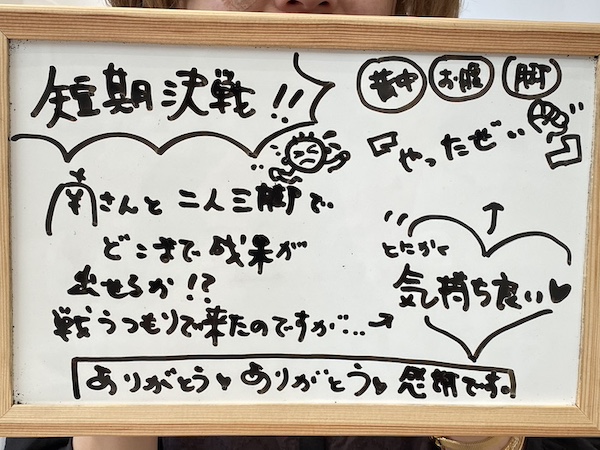 短期決戦!!
背中 お腹 脚
「やったぜ」
南さんと二人三脚で、
どこまで成果が
出せるか!?
戦うつもりで来たのですが…→
とにかく
気持ち良い♥
ありがとう♥ありがとう♥感謝です。